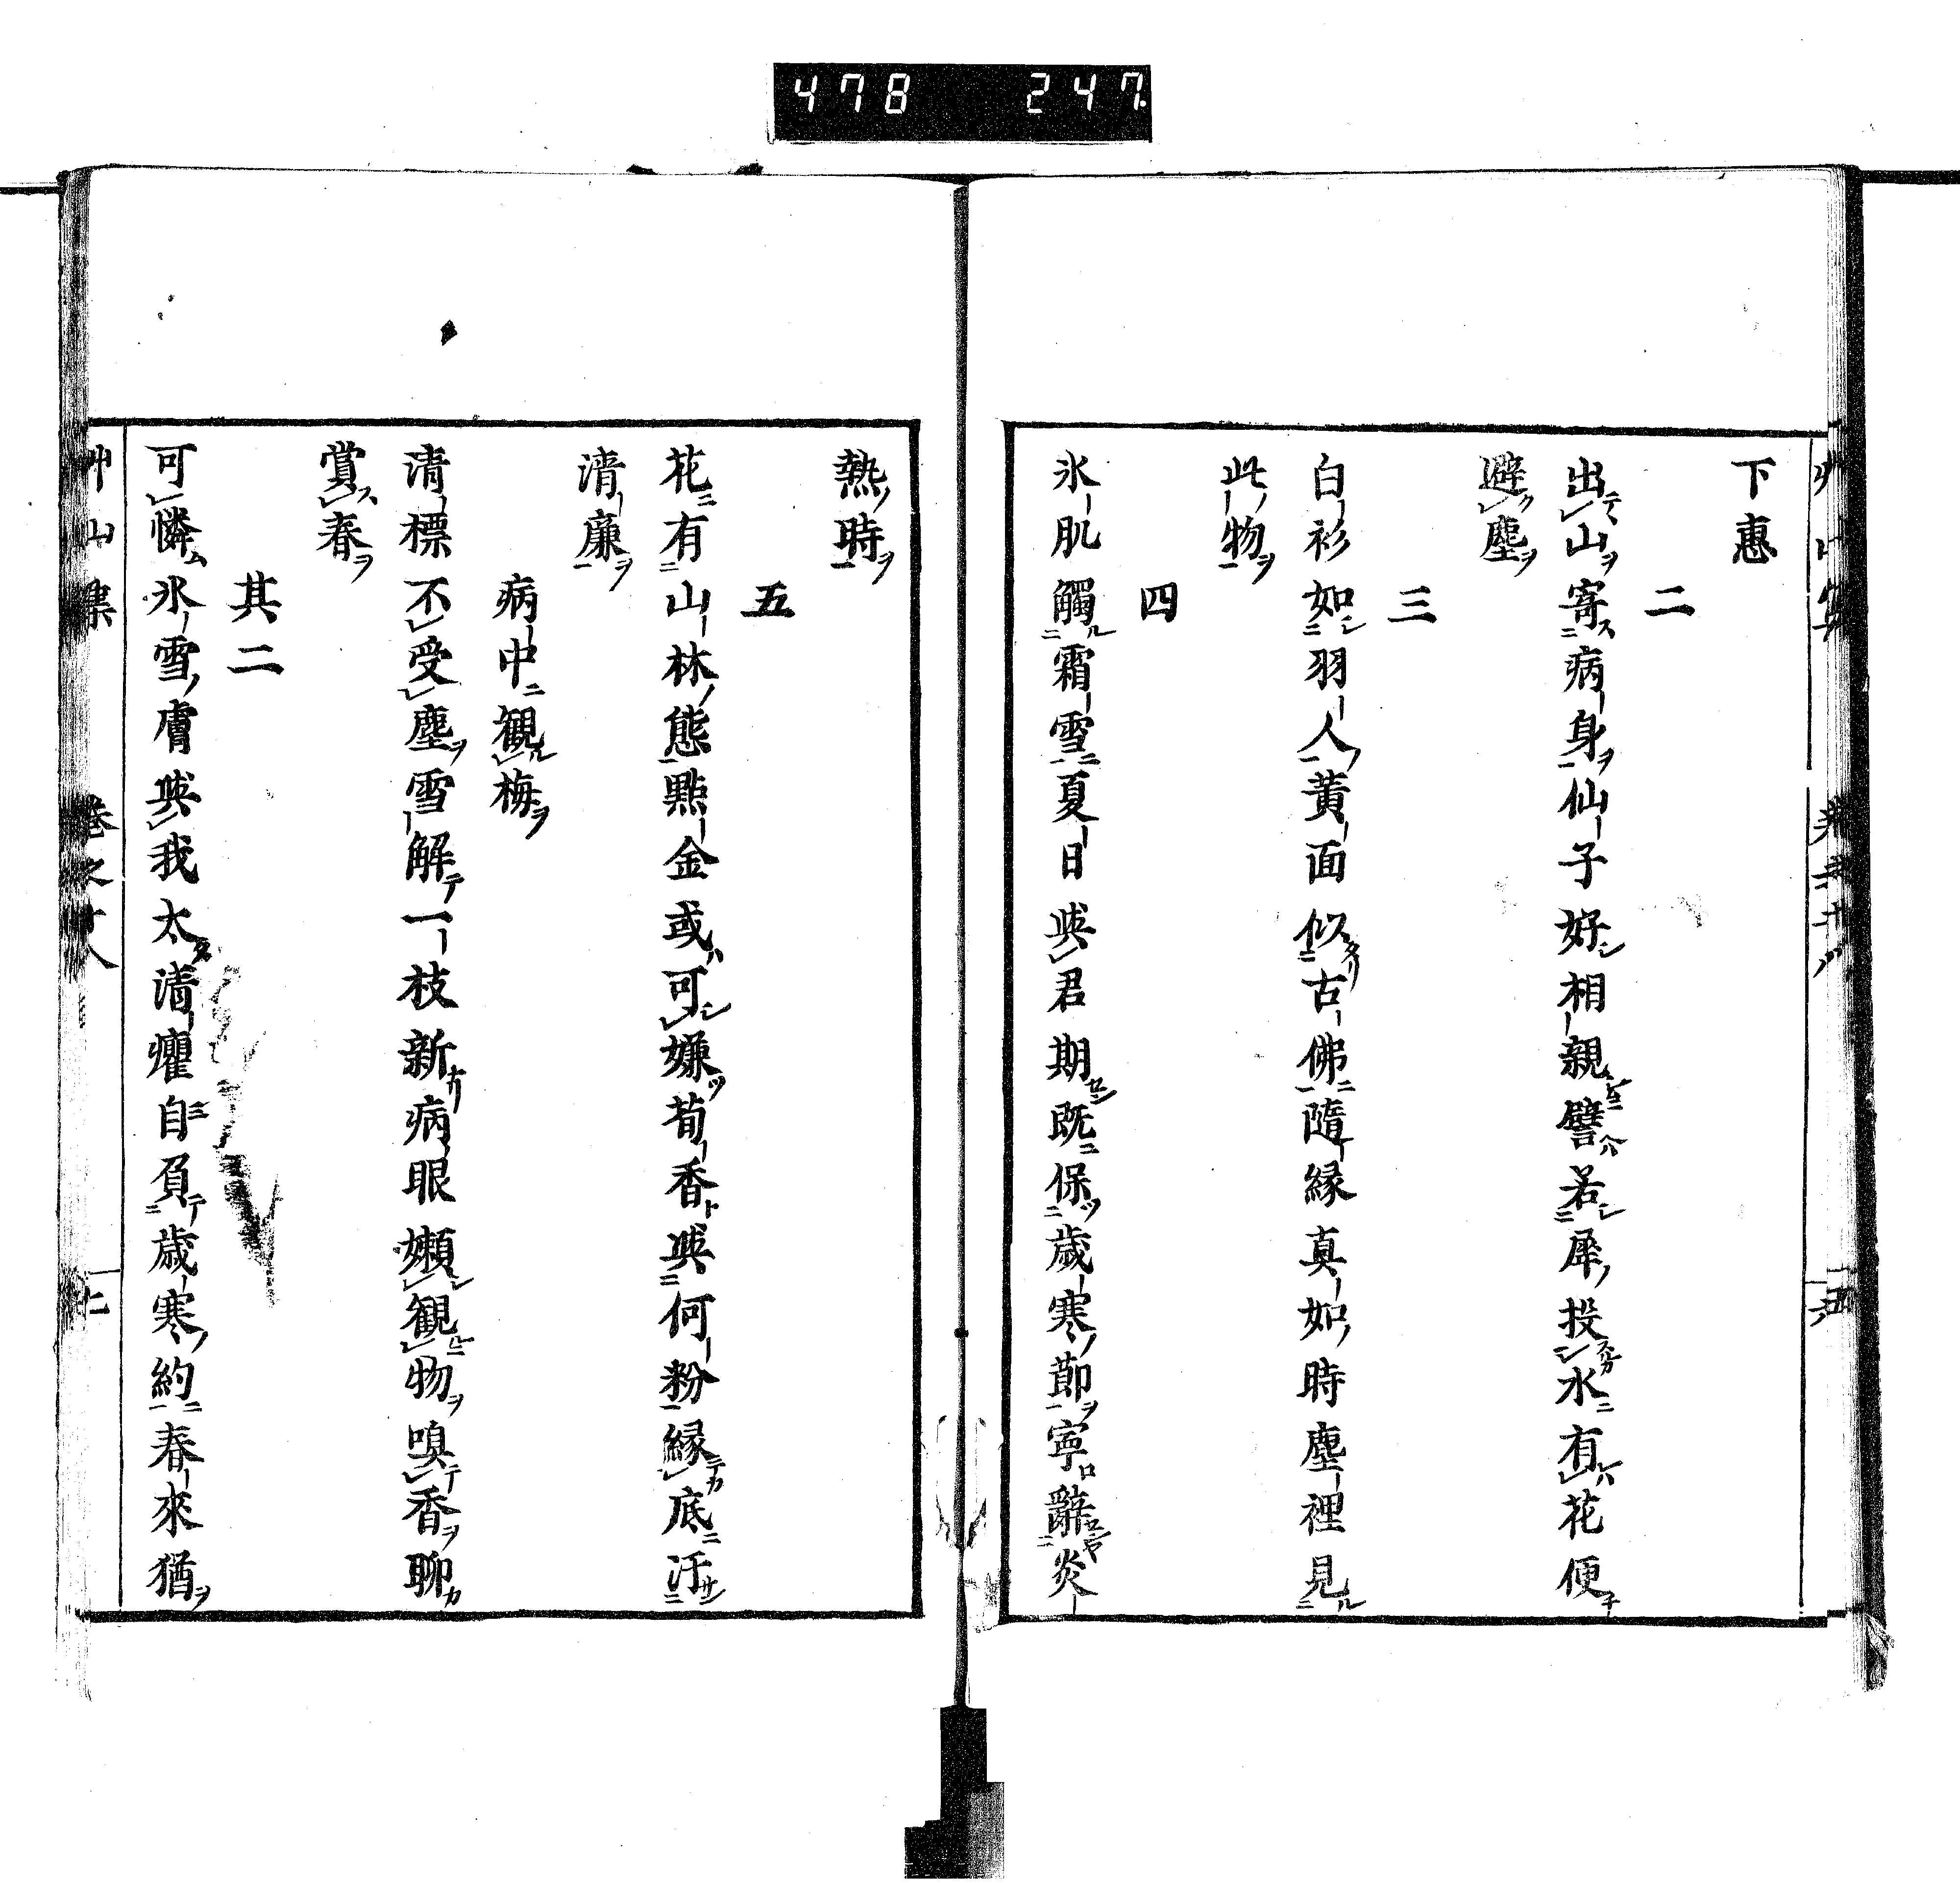 478 247
下惠
二
出山寄病身仙子好相親譬若犀投水有花便
避塵
三
白衫如羽人黃面似古佛隨緣真如時塵裡見
此物
四
氷肌觸霜雪夏日與君期既保歲寒節寧辭炎
熱時
五
花有山林態點金或可嫌荀香與何粉緣底汙
清廉
病中觀梅
清標不受塵雪解一枝新病眼嬾觀物嗅香聊
賞春
其二
可憐氷雪膚與我太清癯自負歲寒約春來猶
艸山集 卷之十八